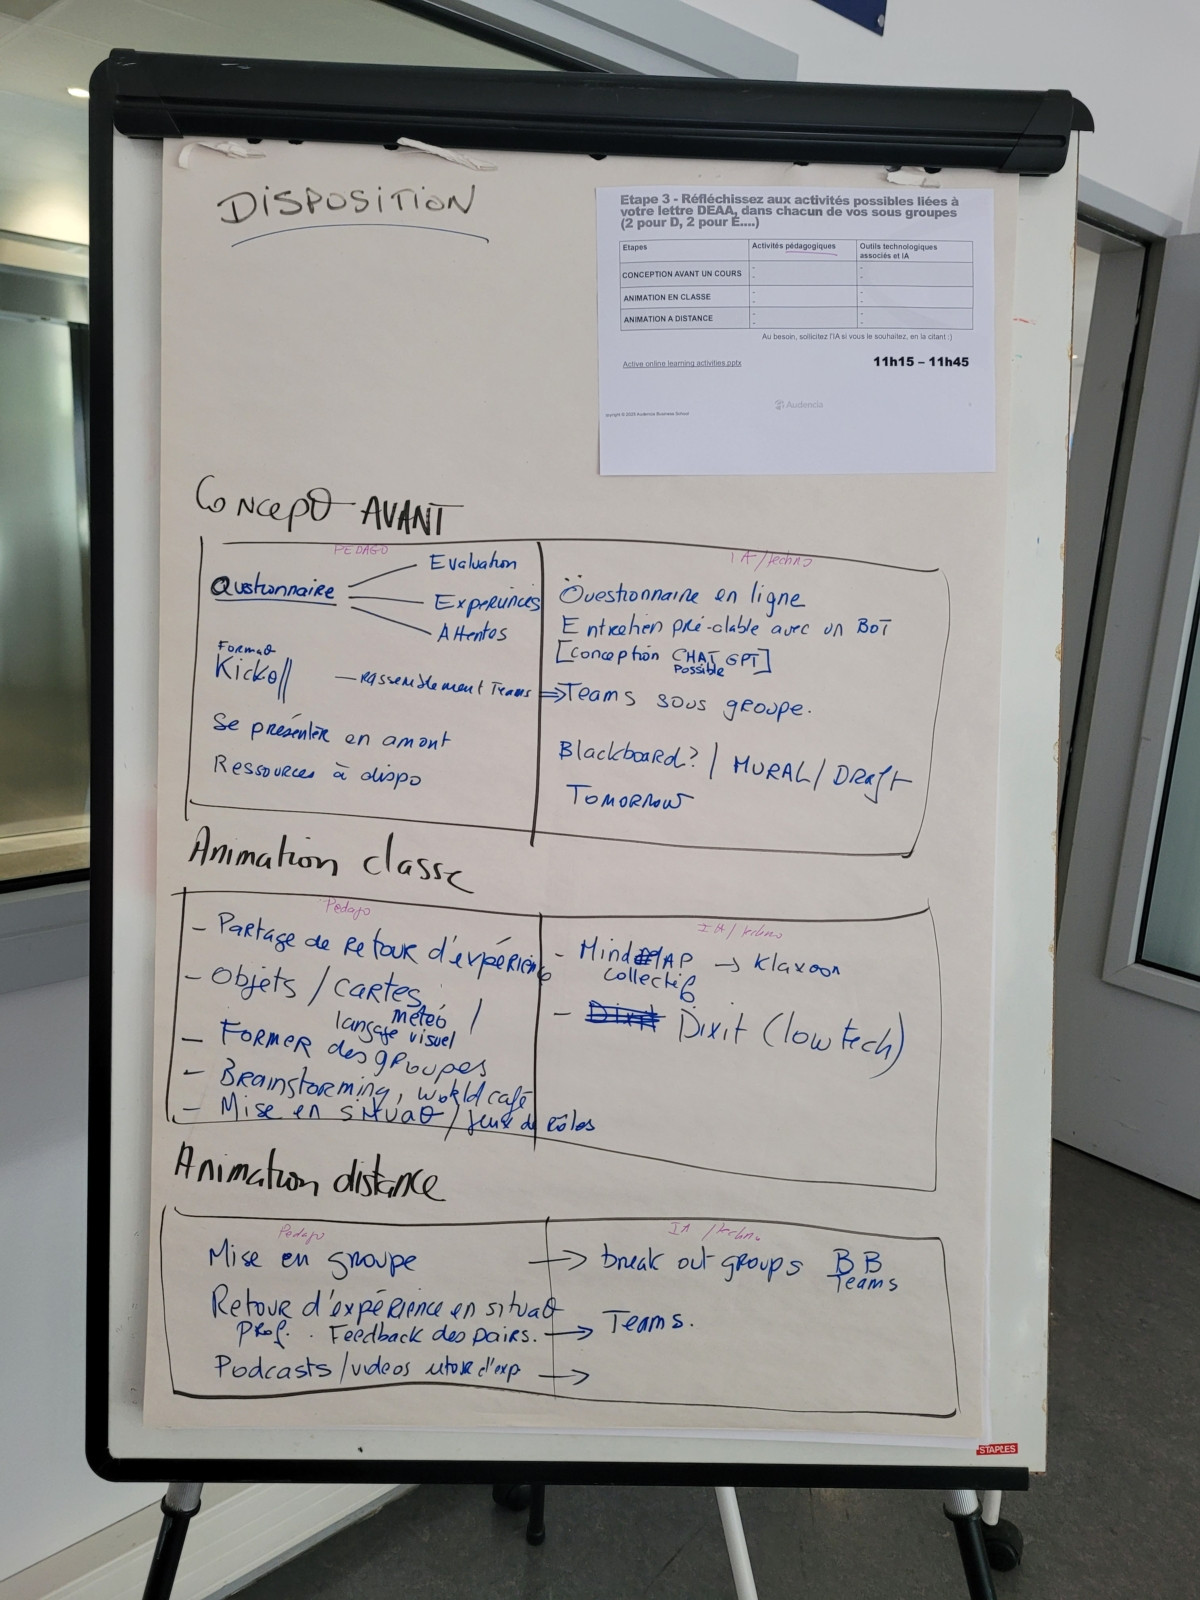 DISPOSITION
Etape 3 - Réfléchissez aux activités possibles liées à
votre lettre DEAA, dans chacun de vos sous groupes
(2 pour D, 2 pour E....)
Etapes
Activités pédagogiques
Outils technologiques
associés et IA
CONCEPTION AVANT UN COURS
-
-
-
-
ANIMATION EN CLASSE
-
-
-
-
ANIMATION A DISTANCE
-
-
-
-
Au besoin, sollicitez l'IA si vous le souhaitez, en la citant :)
Active online learning activities.pptx
11h15 – 11h45
Audencia
Audencia Business School
Concept° AVANT
PEDAGO
Questionnaire
Evaluation
Expériences
Attentes
Format
Kickoff
— rassemblement Teams
Se présenter en amont
Ressources à dispo
IA/techno
Questionnaire en ligne
Entretien pré-alable avec un BOT
[conception CHAT GPT]
possible
⇒ Teams sous groupe.
Blackboard? / MURAL / DRAFT
TOMORROW
Animation classe
Pédago
- Partage de retour d'expérience
- Objets / cartes
météo /
langage visuel
- FORMER des groupes
- Brainstorming, world café
- Mise en situat° / jeux de rôles
IA/techno
- Mind MAP → Klaxoon
collectif
- Dixit (low tech)
Animation distance
Pédago
Mise en groupe
Retour d'expérience en situat°
Prof. . Feedback des pairs.
Podcasts / videos retour d'exp
IA /techno
→ break out groups BB
Teams
→ Teams.
→
STAPLES